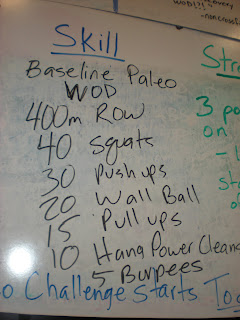 WOD!?!
Skill
Baseline Paleo
WOD
400m Row
40 squats
30 Push ups
20 Wall Ball
15 Pull ups
10 Hang Power Cleans
5 Burpees
o Challenge Starts To
Str
3 po
on